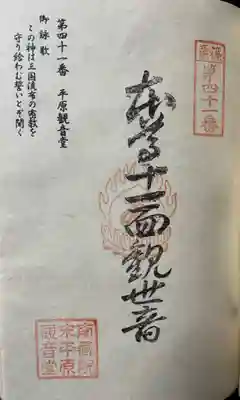 第四十一番
本尊十一面観世音
第四十一番　平原観音堂
御詠歌
この神は三国流布の密教を
守り給わむ誓いとぞ聞く
平原
観音堂